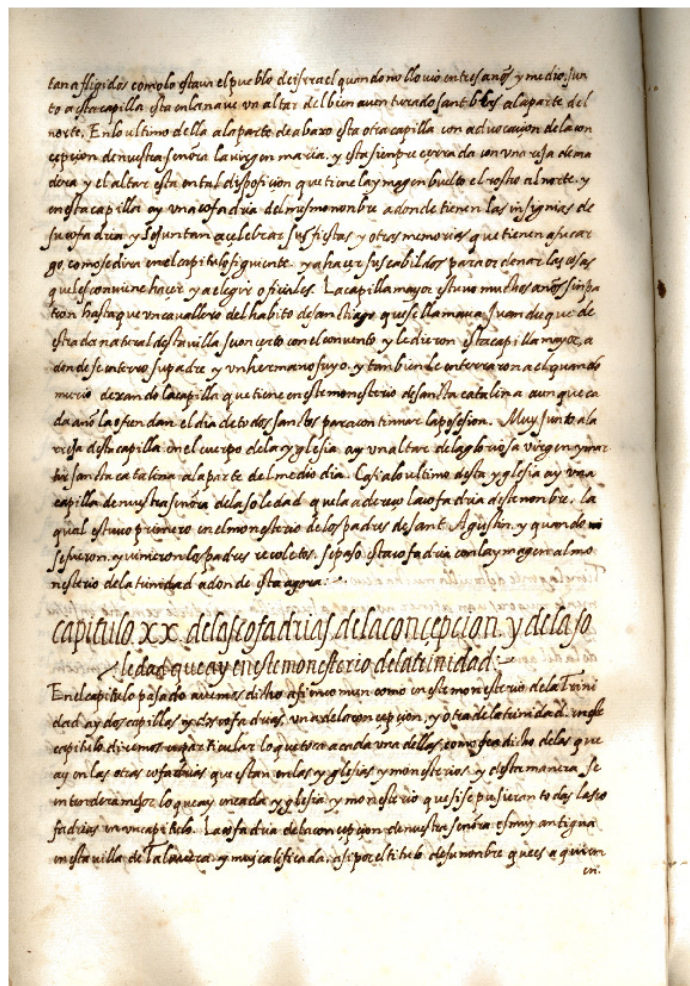 tan afligidos como lo estava el pueblo de israel quando no llovio en tres años y medio. Jun
to a esta capilla esta en la nave un altar del bien aventurado sant blas a la parte del
norte. En lo ultimo della a la parte de abaxo esta otra capilla con advocaçion de la con
cepçion de nuestra señora la virgen maria. y esta siempre cerrada con una rexa de ma
dera y el altar esta en tal disposiçion que tiene la ymagen buelto el rostro al norte. y
en esta capilla ay una cofadria del mesmo nonbre a donde tienen las insignias de
su cofadria y se juntan a çelebrar sus fiestas y otras memorias que tienen a su car
go. como se dira en el capitulo siguiente. y a hazer sus cabildos para ordenar las cosas
que les conviene hazer y a elegir ofiçiales. La capilla mayor estuvo muchos años sin pa
tron hasta que un cavallero del habito de sanctiago que se llamava Juan duque de
estrada natural desta villa se conçerto con el convento y le dieron esta capilla mayor, a
donde se enterro su padre y un hermano suyo. y tanbien le enterraron a el quando
murio dexando la capilla que tiene en este monesterio de sancta catalina aunque ca
da año la ofrendan el dia de todos sanctos para continuar la posesion. Muy junto a la
rrexa desta capilla en el cuerpo de la yglesia ay un altar de la gloriosa virgen y mar
tir sancta catalina a la parte del medio dia. Casi a lo ultimo desta yglesia ay una
capilla de nuestra señora de la soledad que la adereço la cofadria deste nonbre. la
qual estuvo primero en el monesterio de los padres de sant Agustin. y quando
se fueron. y vinieron los padres recoletos. se paso esta cofadria con la ymagen al mo
nesterio de la trinidad a donde esta agora:
capitulo. xx. de las cofadrias. de la conçepcion. y de la so
ledad que ay en este monesterio de la trinidad.
En el capitulo pasado avemos dicho asi en comun como en este monesterio de la Trini
dad ay dos capillas y dos cofadrias, una de la conçepçion, y otra de la trinidad. en este
capitulo diremos en particular lo que toca a cada una dellas, como sea dicho de las que
ay en las otras cofadrias que estan en las yglesias y monesterios. y desta manera se
entendera mejor lo que ay en cada yglesia y monesterio que si se pusieran todas las co
fadrias en un capitulo. La cofadria de la conçepçion de nuestra señora es muy antigua
en esta villa de Talavera. y muy calificada. asi por el titulo de su nonbre que es a quien
en.